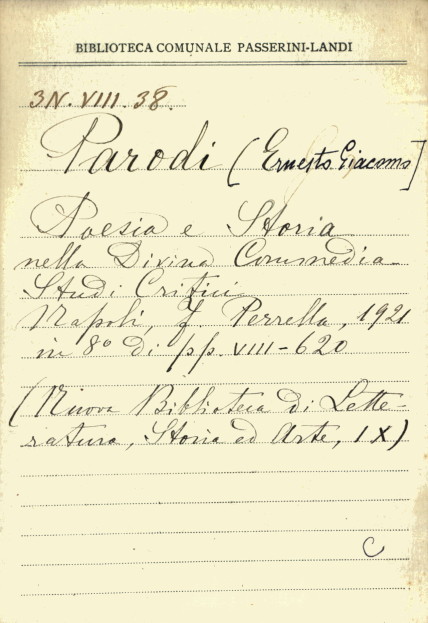 BIBLIOTECA COMUNALE PASSERINI-LANDI
3N. VIII. 38.
Parodi (Ernesto Giacomo]
Poesia e Storia
nella Divina Commedia
Studi Critici
Napoli, F. Perrella, 1921
in 8° di pp. VIII-620
(Nuova Biblioteca di Lette-
ratura, Storia ed Arte, IX)
C